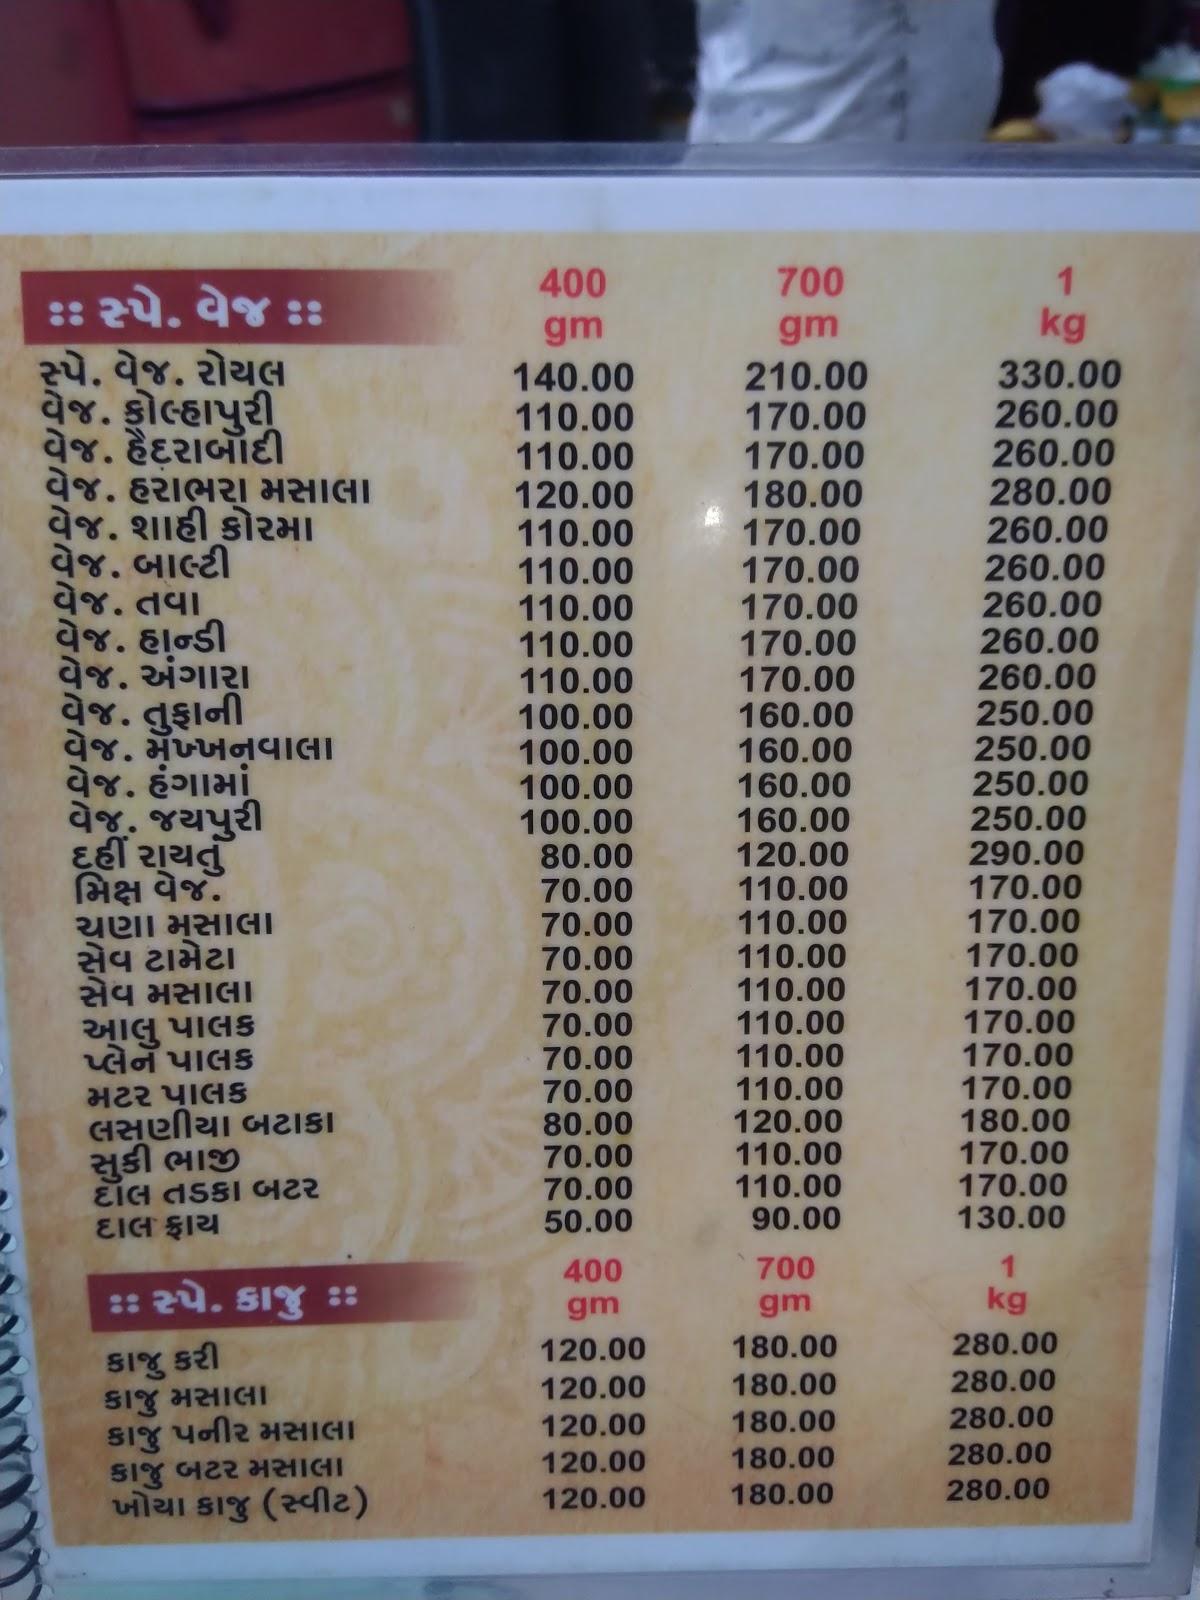 :: સ્પે. વેજ :: 400 gm 700 gm 1 kg
સ્પે. વેજ. રોયલ 140.00 210.00 330.00
વેજ. કોલ્હાપુરી 110.00 170.00 260.00
વેજ. હૈદરાબાદી 110.00 170.00 260.00
વેજ. હરાભરા મસાલા 120.00 180.00 280.00
વેજ. શાહી કોરમા 110.00 170.00 260.00
વેજ. બાલ્ટી 110.00 170.00 260.00
વેજ. તવા 110.00 170.00 260.00
વેજ. હાન્ડી 110.00 170.00 260.00
વેજ. અંગારા 110.00 170.00 260.00
વેજ. તુફાની 100.00 160.00 250.00
વેજ. મખ્ખનવાલા 100.00 160.00 250.00
વેજ. હંગામાં 100.00 160.00 250.00
વેજ. જયપુરી 100.00 160.00 250.00
દહીં રાયતું 80.00 120.00 290.00
મિક્ષ વેજ. 70.00 110.00 170.00
ચણા મસાલા 70.00 110.00 170.00
સેવ ટામેટા 70.00 110.00 170.00
સેવ મસાલા 70.00 110.00 170.00
આલુ પાલક 70.00 110.00 170.00
પ્લેન પાલક 70.00 110.00 170.00
મટર પાલક 70.00 110.00 170.00
લસણીયા બટાકા 80.00 120.00 180.00
સુકી ભાજી 70.00 110.00 170.00
દાલ તડકા બટર 70.00 110.00 170.00
દાલ ફ્રાય 50.00 90.00 130.00
:: સ્પે. કાજુ :: 400 gm 700 gm 1 kg
કાજુ કરી 120.00 180.00 280.00
કાજુ મસાલા 120.00 180.00 280.00
કાજુ પનીર મસાલા 120.00 180.00 280.00
કાજુ બટર મસાલા 120.00 180.00 280.00
ખોયા કાજુ (સ્વીટ) 120.00 180.00 280.00